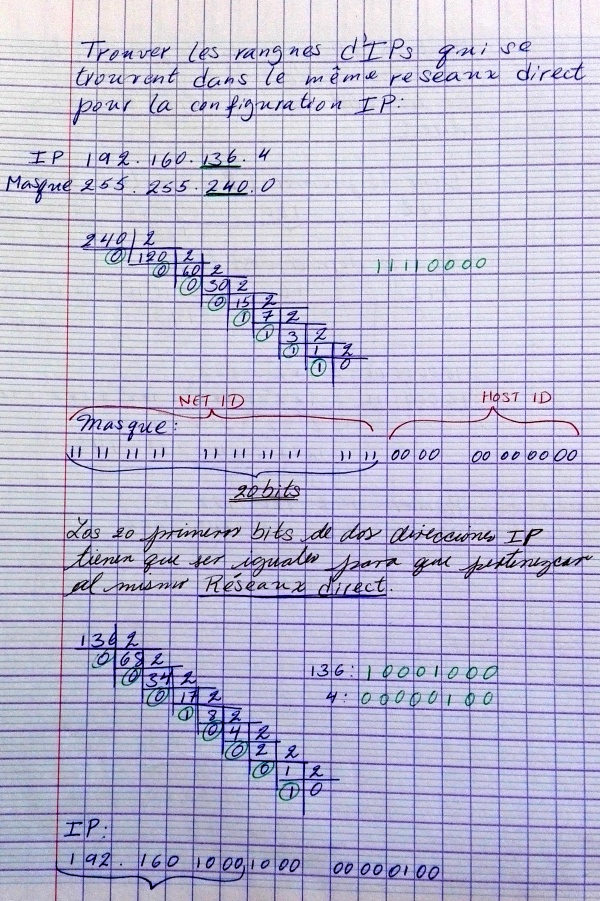 Trouver les rangnes d'IPs qui se
trouvent dans le même reseaux direct
pour la configuration IP:
IP 192.160.136.4
Masque 255.255.240.0
240 2
0 120 2
0 60 2
0 30 2
0 15 2
1 7 2
1 3 2
1 1 2
1 0
11110000
NET ID
HOST ID
Masque:
11 11 11 11 11 11 11 11 11 11 00 00 00 00 00 00
20 bits
Los 20 primeros bits de dos direcciones IP
tienen que ser iguales para que pertenezcan
al mismo Réseaux direct.
136 2
0 68 2
0 34 2
0 17 2
1 8 2
0 4 2
0 2 2
0 1 2
1 0
136: 10001000
4: 00000100
IP:
192. 160 1000 1000 00000100